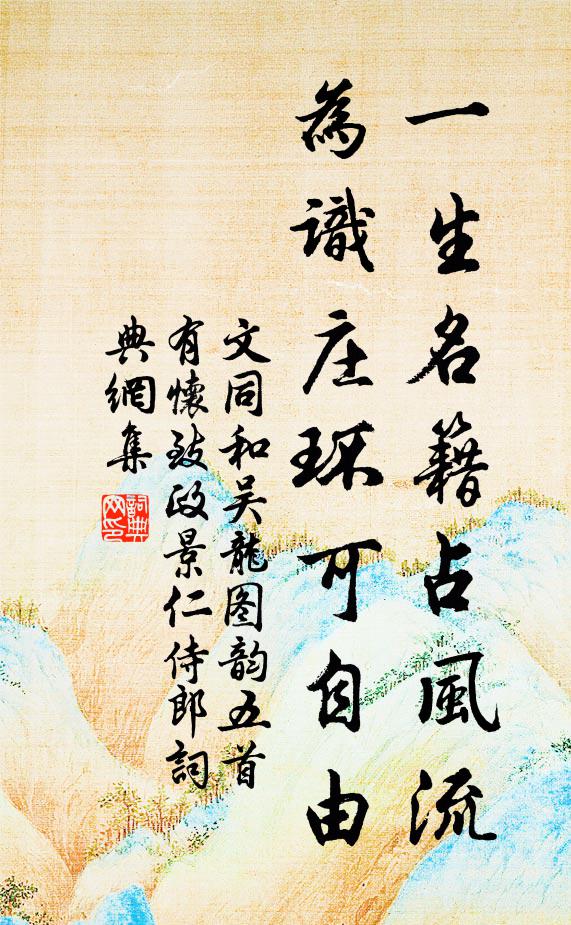 一生名籍占風流
為識庄环可自由
文同和吴龍图韵五首
有懷致政景仁侍郎詞
典網集
詞典
网印